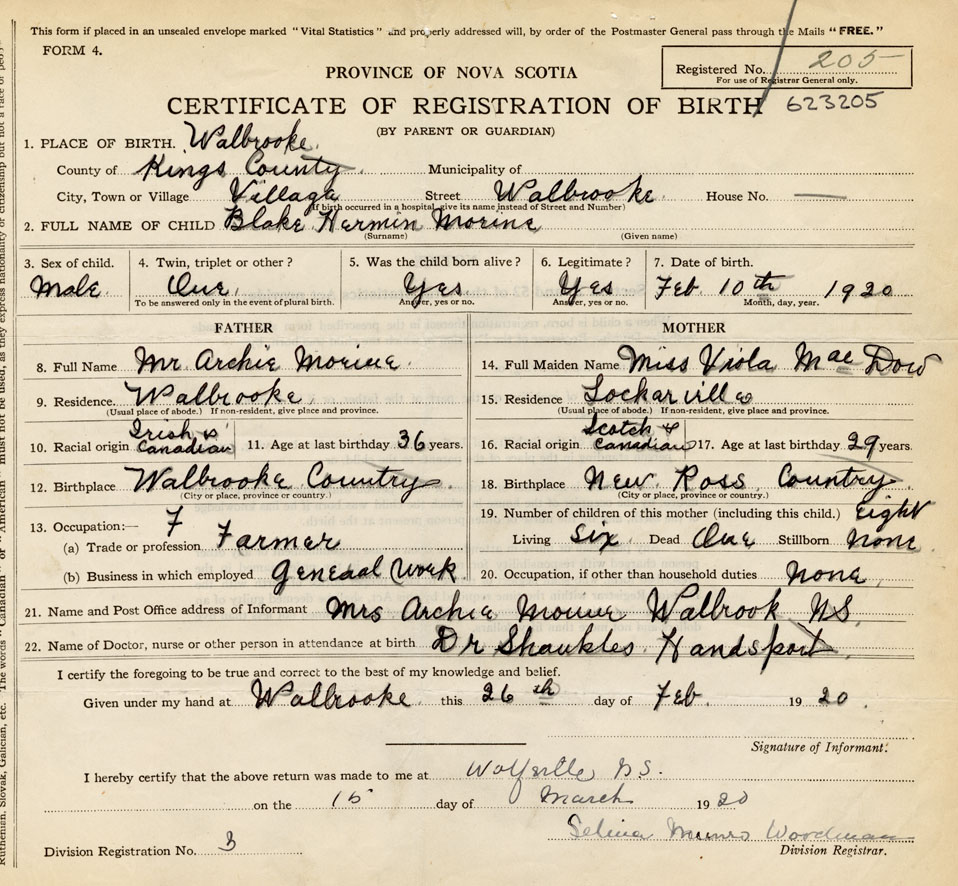 This form if placed in an unsealed envelope marked "Vital Statistics" and properly addressed will, by order of the Postmaster General pass through the Mails "FREE."
FORM 4.
Registered No. 205
For use of Registrar General only.
PROVINCE OF NOVA SCOTIA
CERTIFICATE OF REGISTRATION OF BIRTH 623205
(BY PARENT OR GUARDIAN)
1. PLACE OF BIRTH. Walbrooke.
County of Kings County. Municipality of
City, Town or Village Village Street Walbrooke House No. —
(If birth occurred in a hospital, give its name instead of Street and Number)
2. FULL NAME OF CHILD Blake Hermin Morine
(Surname) (Given name)
3. Sex of child. 4. Twin, triplet or other? 5. Was the child born alive? 6. Legitimate? 7. Date of birth.
Male. One. Yes Yes Feb. 10th 1920
To be answered only in the event of plural birth. Answer, yes or no. Answer, yes or no. Month, day, year.
FATHER MOTHER
8. Full Name Mr Archie Morine. 14. Full Maiden Name Miss Viola Mae Dow
9. Residence. Walbrooke 15. Residence Lockarville
(Usual place of abode.) If non-resident, give place and province. (Usual place of abode.) If non-resident, give place and province.
10. Racial origin Irish & Canadian 11. Age at last birthday 36 years. 16. Racial origin Scotch & Canadian 17. Age at last birthday 29 years.
12. Birthplace Walbrooke Country. 18. Birthplace New Ross Country
(City or place, province or country.) (City or place, province or country.)
13. Occupation:— F 19. Number of children of this mother (including this child.) eight
(a) Trade or profession Farmer Living Six. Dead One Stillborn None
(b) Business in which employed Geneaal Work. 20. Occupation, if other than household duties None.
21. Name and Post Office address of Informant Mrs Archie Morine Walbrook NS.
22. Name of Doctor, nurse or other person in attendance at birth Dr Shankles. Handsport.
I certify the foregoing to be true and correct to the best of my knowledge and belief.
Given under my hand at Walbrooke this 26th day of Feb. 1920.
Signature of Informant.
I hereby certify that the above return was made to me at Wolfville N.S.
on the 15 day of March 1920
Selina Munro Woodman
Division Registration No. 3 Division Registrar.
Ruthenian, Slovak, Galician, etc. The words "Canadian" or "American" must not be used, as they express nationality or citizenship but not a race of